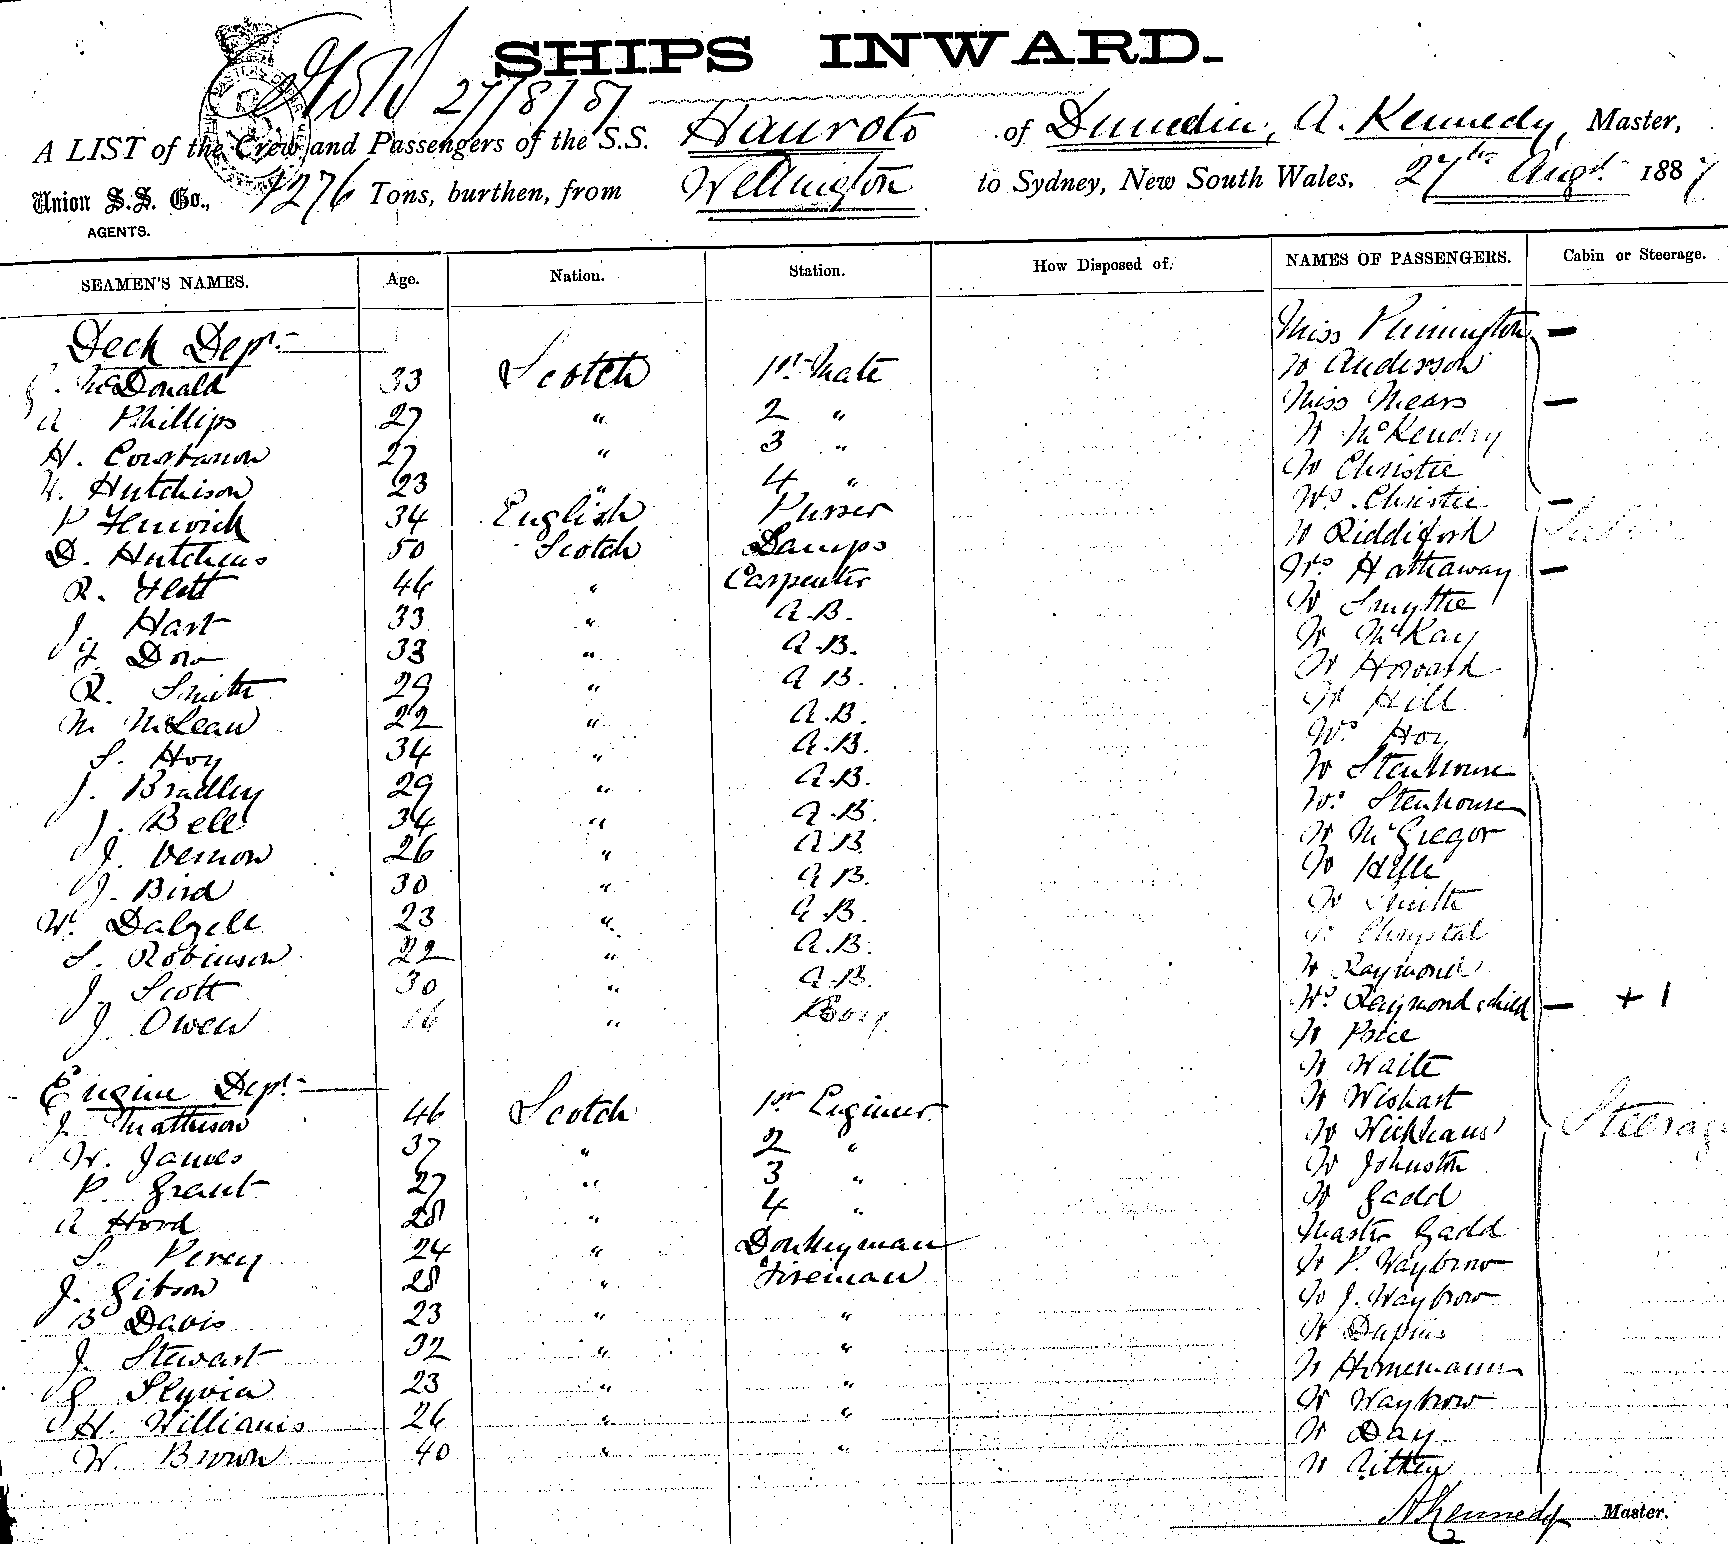 SHIPS INWARD.
27/8/87
A LIST of the Crew and Passengers of the S.S. Hauroto of Dunedin, A. Kennedy, Master,
Union S.S. Co., 1276 Tons, burthen, from Wellington to Sydney, New South Wales, 27th Augt. 1887
AGENTS.
SEAMEN'S NAMES. Age. Nation. Station. How Disposed of. NAMES OF PASSENGERS. Cabin or Steerage.
Deck Dept. Miss Pinnington —
McDonald 33 Scotch 1st Mate Mr Anderson
A Phillips 27 " 2 " Miss Mears —
H. Constanon 27 " 3 " Mr McKendry
Hutchison 23 " 4 " Mr Christie
P Fenwick 34 English Purser Mrs. Christie —
D. Hutchens 50 Scotch Lamps Mr Riddiford
R. Flett 46 " Carpenter Mrs Hathaway —
J. Hart 33 " A.B. Mr Smythe
J. Dow 33 " A.B. Mr McKay
R. Smith 29 " A B. Mr Howard
M McLean 22 " A.B. Mr Hill
S. Hoy 34 " A.B. Mrs Hoy
J. Bradley 29 " A.B. Mr Stenhouse
J. Bell 34 " A.B. Mrs Stenhouse
J. Vernon 26 " A.B. Mr McGregor
J. Bird 30 " A B. Mr
W. Dalzell 23 " A.B. Mr Smith
S. Robinson 22 " A.B. Mr Chrystal
J. Scott 30 " A.B. Mr Raymond
J. Owen 16 " Boy Mrs Raymond & child — + 1
Mr Price
Mr Waite
Engine Dept. Mr Wishart
J. Mathieson 46 Scotch 1st Engineer Mr Wickham Steerage
W. James 37 " 2 " Mr Johnston
P. Grant 27 " 3 " Mr Gadd
A Hord 28 " 4 " Master Gadd
S. Percy 24 " Donkeyman Mr P. Waybrow
J. Gibson 28 " Fireman Mr J. Waybrow
B Davis 23 " " Mr
J. Stewart 32 " " Mr Hornemann
G Slyvia 23 " " Mr Waybrow
H. Williams 26 " " Mr Day
W. Brown 40 " " Mr Aitken
A Kennedy Master.